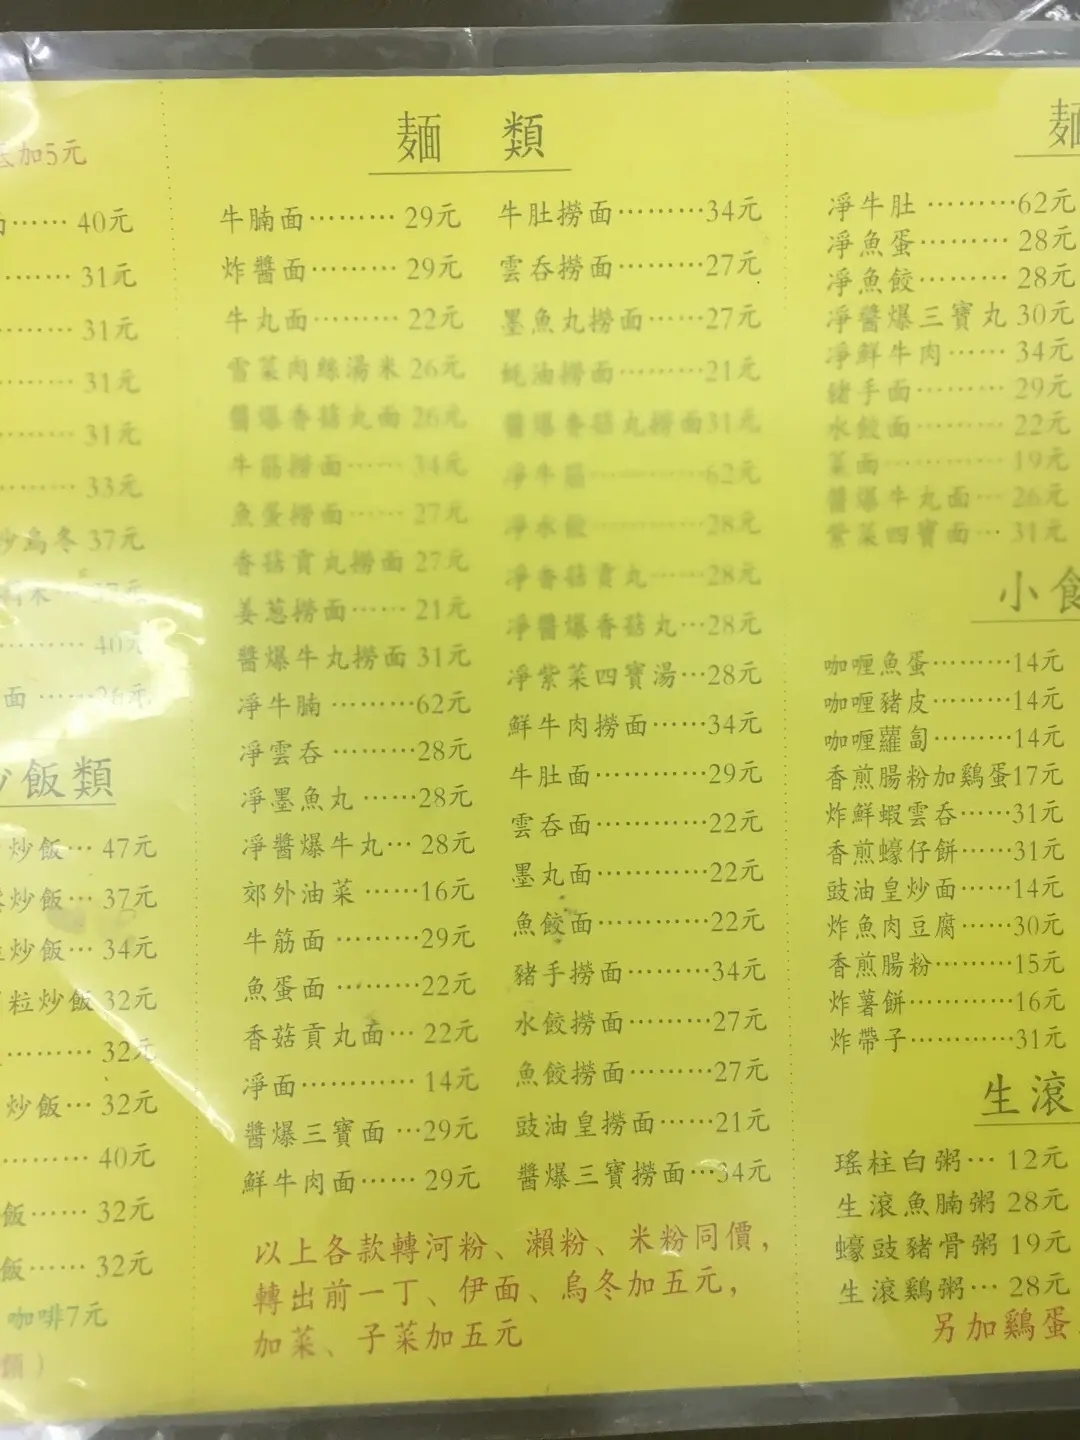 加5元
40元
31元
31元
31元
31元
33元
炒烏冬 37元
40元
面
飯類
炒飯 47元
炒飯 37元
炒飯 34元
粒炒飯 32元
32元
炒飯 32元
40元
飯 32元
飯 32元
咖啡7元
麵 類
牛腩面 29元
炸醬面 29元
牛丸面 22元
雪菜肉絲湯米 26元
醬爆香菇丸面 26元
牛筋撈面 34元
魚蛋撈面 27元
香菇貢丸撈面 27元
姜蔥撈面 21元
醬爆牛丸撈面 31元
凈牛腩 62元
凈雲吞 28元
凈墨魚丸 28元
凈醬爆牛丸 28元
郊外油菜 16元
牛筋面 29元
魚蛋面 22元
香菇貢丸面 22元
凈面 14元
醬爆三寶面 29元
鮮牛肉面 29元
牛肚撈面 34元
雲吞撈面 27元
墨魚丸撈面 27元
蚝油撈面 21元
醬爆香菇丸撈面31元
凈牛筋 62元
凈水餃 28元
凈香菇貢丸 28元
凈醬爆香菇丸 28元
凈紫菜四寶湯 28元
鮮牛肉撈面 34元
牛肚面 29元
雲吞面 22元
墨丸面 22元
魚餃面 22元
豬手撈面 34元
水餃撈面 27元
魚餃撈面 27元
豉油皇撈面 21元
醬爆三寶撈面 34元
以上各款轉河粉、瀨粉、米粉同價，
轉出前一丁、伊面、烏冬加五元，
加菜、子菜加五元
麵
凈牛肚 62元
凈魚蛋 28元
凈魚餃 28元
凈醬爆三寶丸 30元
凈鮮牛肉 34元
豬手面 29元
水餃面 22元
菜面 19元
醬爆牛丸面 26元
紫菜四寶面 31元
小食
咖喱魚蛋 14元
咖喱豬皮 14元
咖喱蘿蔔 14元
香煎腸粉加鷄蛋17元
炸鮮蝦雲吞 31元
香煎蠔仔餅 31元
豉油皇炒面 14元
炸魚肉豆腐 30元
香煎腸粉 15元
炸薯餅 16元
炸帶子 31元
生滾
瑤柱白粥 12元
生滾魚腩粥 28元
蠔豉豬骨粥 19元
生滾鷄粥 28元
另加鷄蛋